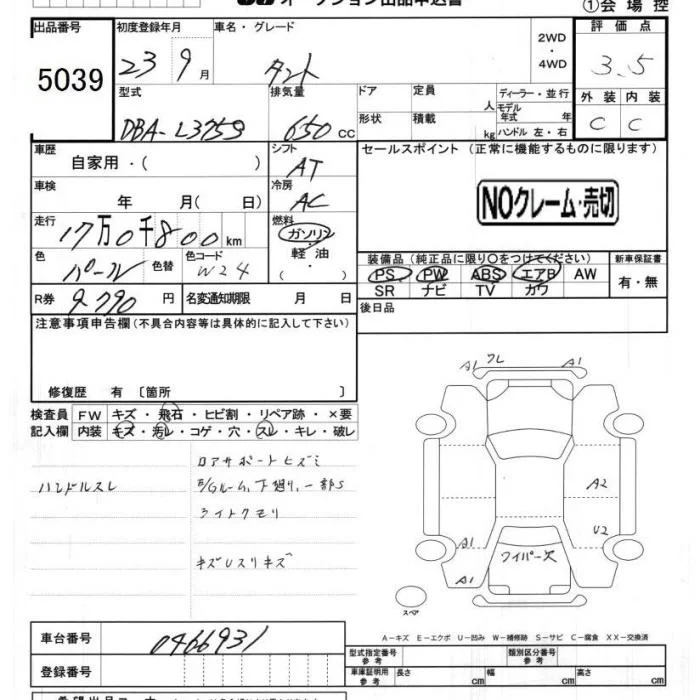 オークション出品申込書
①会場控
出品番号 5039
初度登録年月 23 9月
車名・グレード タント
2WD・4WD
評価点 3.5
外装 内装
C C
型式 DBA-L375S
排気量 650 CC
ドア 形状
定員 人
積載 kg
ディーラー・並行
モデル年式 年
ハンドル 左・右
車歴 自家用・( )
シフト AT
セールスポイント (正常に機能するものに限ります)
車検 年 月( 日)
冷房 AC
NOクレーム・売切
走行 17万0千800km
燃料 ガソリン 軽油・( )
色 パール
色替
色コード W24
装備品 (純正品に限り○をつけてください)
新車保証書
PS PW ABS エアB AW
SR ナビ TV カワ
有・無
R券 9,790 円
名変通知期限 月 日
後日品
注意事項申告欄 (不具合内容等は具体的に記入して下さい)
修復歴 有 〔箇所 〕
検査員記入欄
FW キズ・飛石・ヒビ割・リペア跡・×要
内装 キズ・汚レ・コゲ・穴・スレ・キレ・破レ
ロアサポートヒズミ
ハンドルスレ
E/Gルーム、下廻り、一部S
ライトクモリ
キズUスリキズ
A1 ワレ A1
A2
A1 U2
ワイパー欠
A1
スペア
A-キズ E-エクボ U-凹み W-補修跡 S-サビ C-腐食 XX-交換済
車台番号 0466931
型式指定番号 参考
類別区分番号 参考
登録番号
車庫証明用 参考 長さ cm 幅 cm 高さ cm
希望出品コーナー